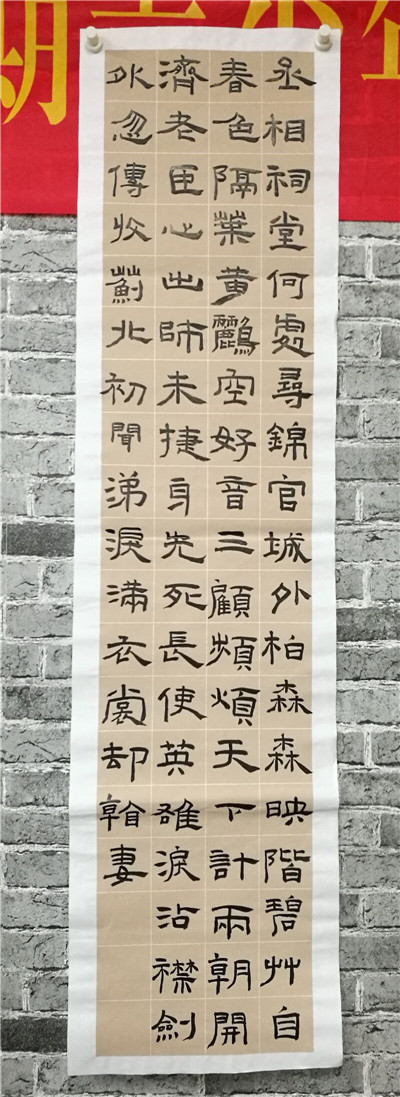 丞相祠堂何處尋錦官城外柏森森映階碧艸自
春色隔葉黄鸝空好音三顧頻煩天下計兩朝開
濟老臣心出師未捷身先死長使英雄淚沾襟劍
外忽傳收薊北初聞涕淚滿衣裳却看妻